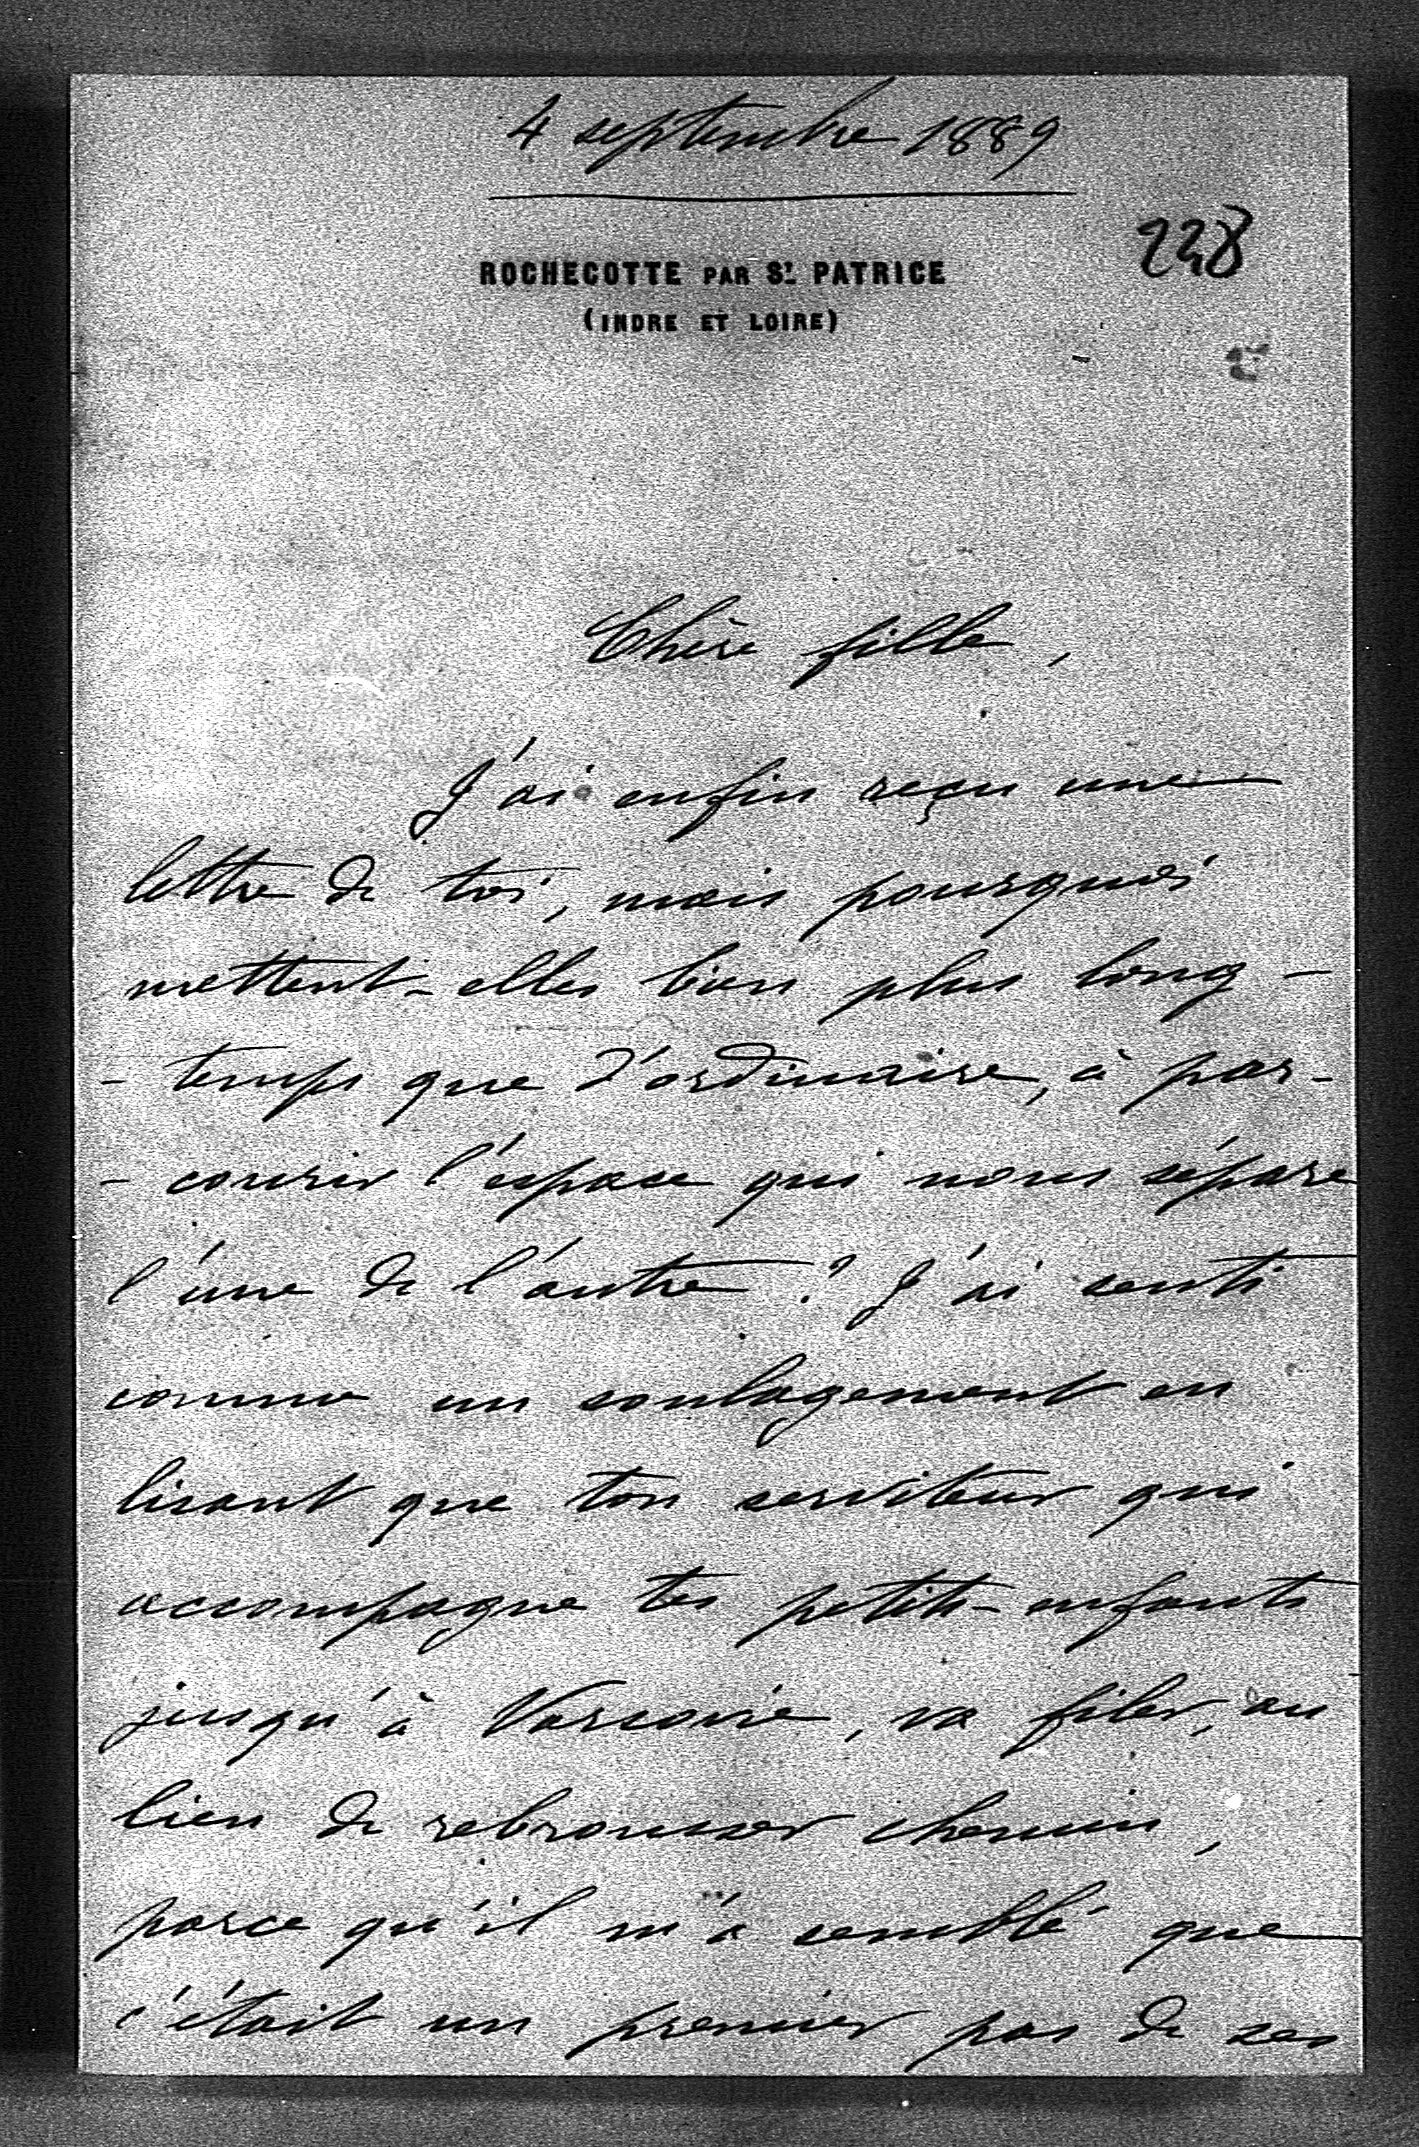 4 septembre 1889
228
ROCHECOTTE PAR ST. PATRICE
(INDRE ET LOIRE)
Chère fille,
J'ai enfin reçu une
lettre de toi, mais pourquoi
mettent-elles bien plus long-
- temps que d'ordinaire, à par-
- courir l'espace qui nous sépare
l'une de l'autre ? J'ai senti
comme un soulagement en
lisant que ton serviteur qui
accompagne tes petits-enfants
jusqu'à Varsovie, va filer, au
lieu de rebrousser chemin,
parce qu'il m'a semblé que
c'était un premier pas de ses